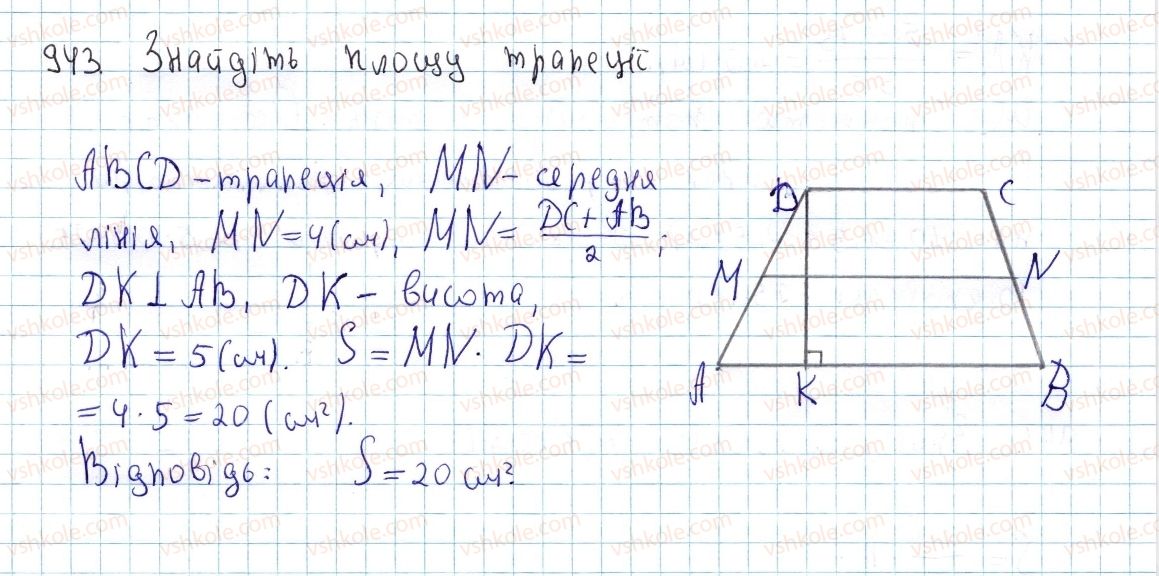 943. Знайдіть площу трапеції
ABCD – трапеція, MN – середня
лінія, MN = 4 (см), MN = (DC + AB)/2;
DK ⊥ AB, DK – висота,
DK = 5 (см). S = MN · DK =
= 4 · 5 = 20 (см²).
Відповідь: S = 20 см²
D C
M N
A K B
vshkole.com